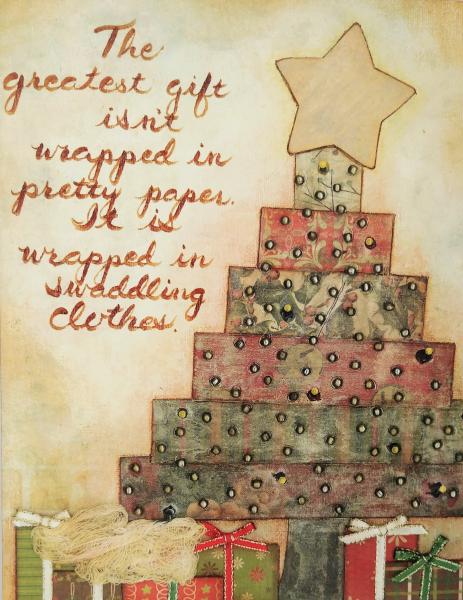 The
greatest gift
isn't
wrapped in
pretty paper.
It is
wrapped in
swaddling
clothes.